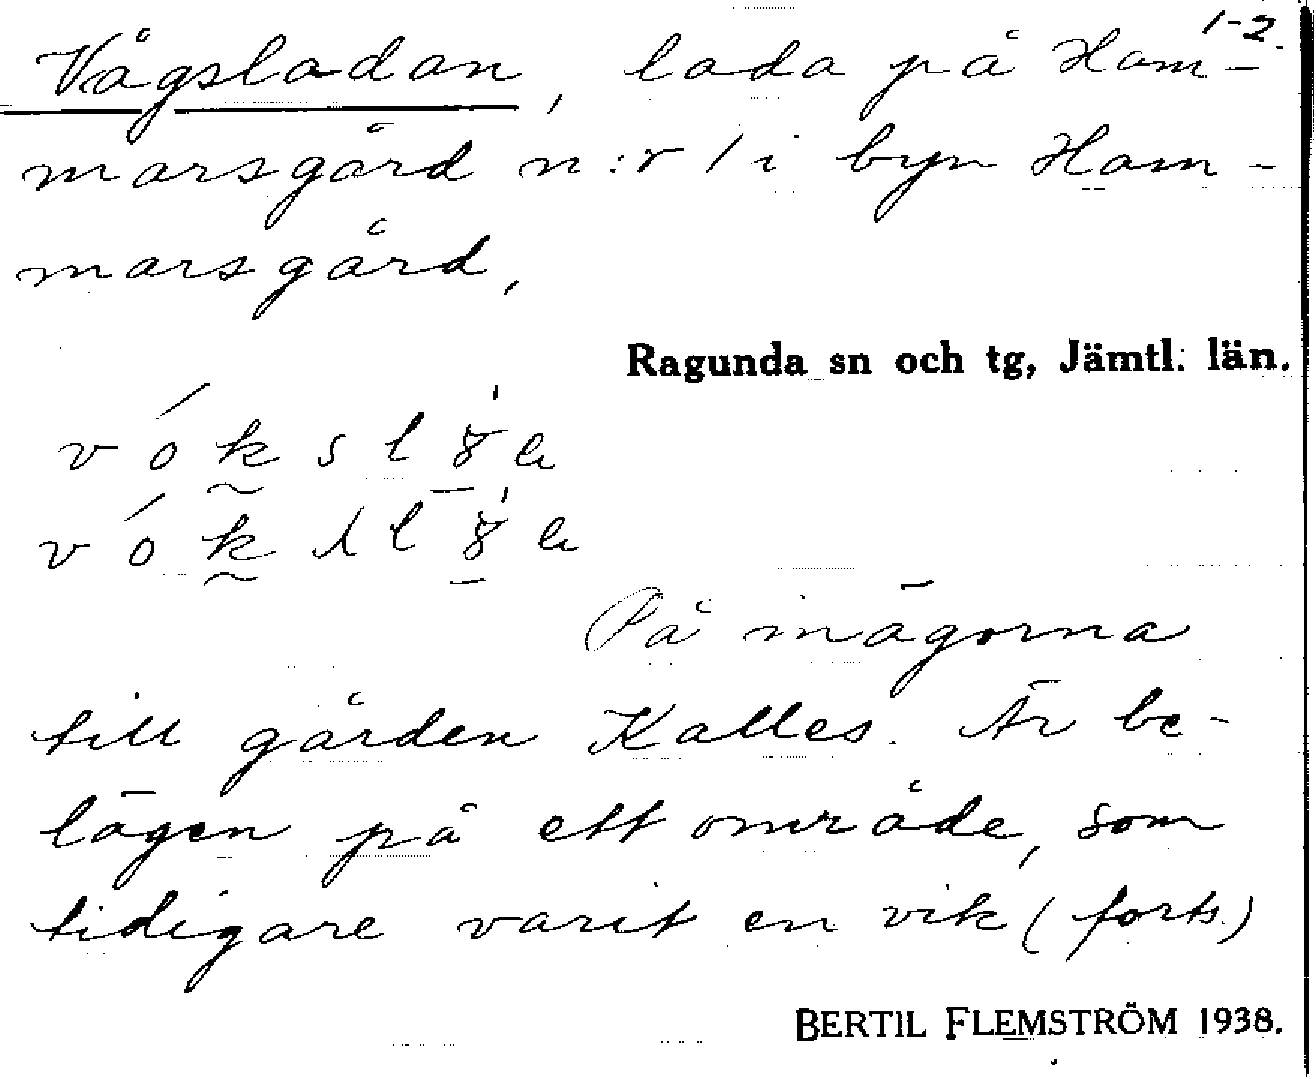 1-2.
Vågsladan, lada på Ham-
marsgård n:r 1 i byn Ham-
marsgård,
Ragunda sn och tg, Jämtl. län.
På inägorna
till gården Kalles. Är be-
lägen på ett område, som
tidigare varit en vik (forts.)
BERTIL FLEMSTRÖM 1938.